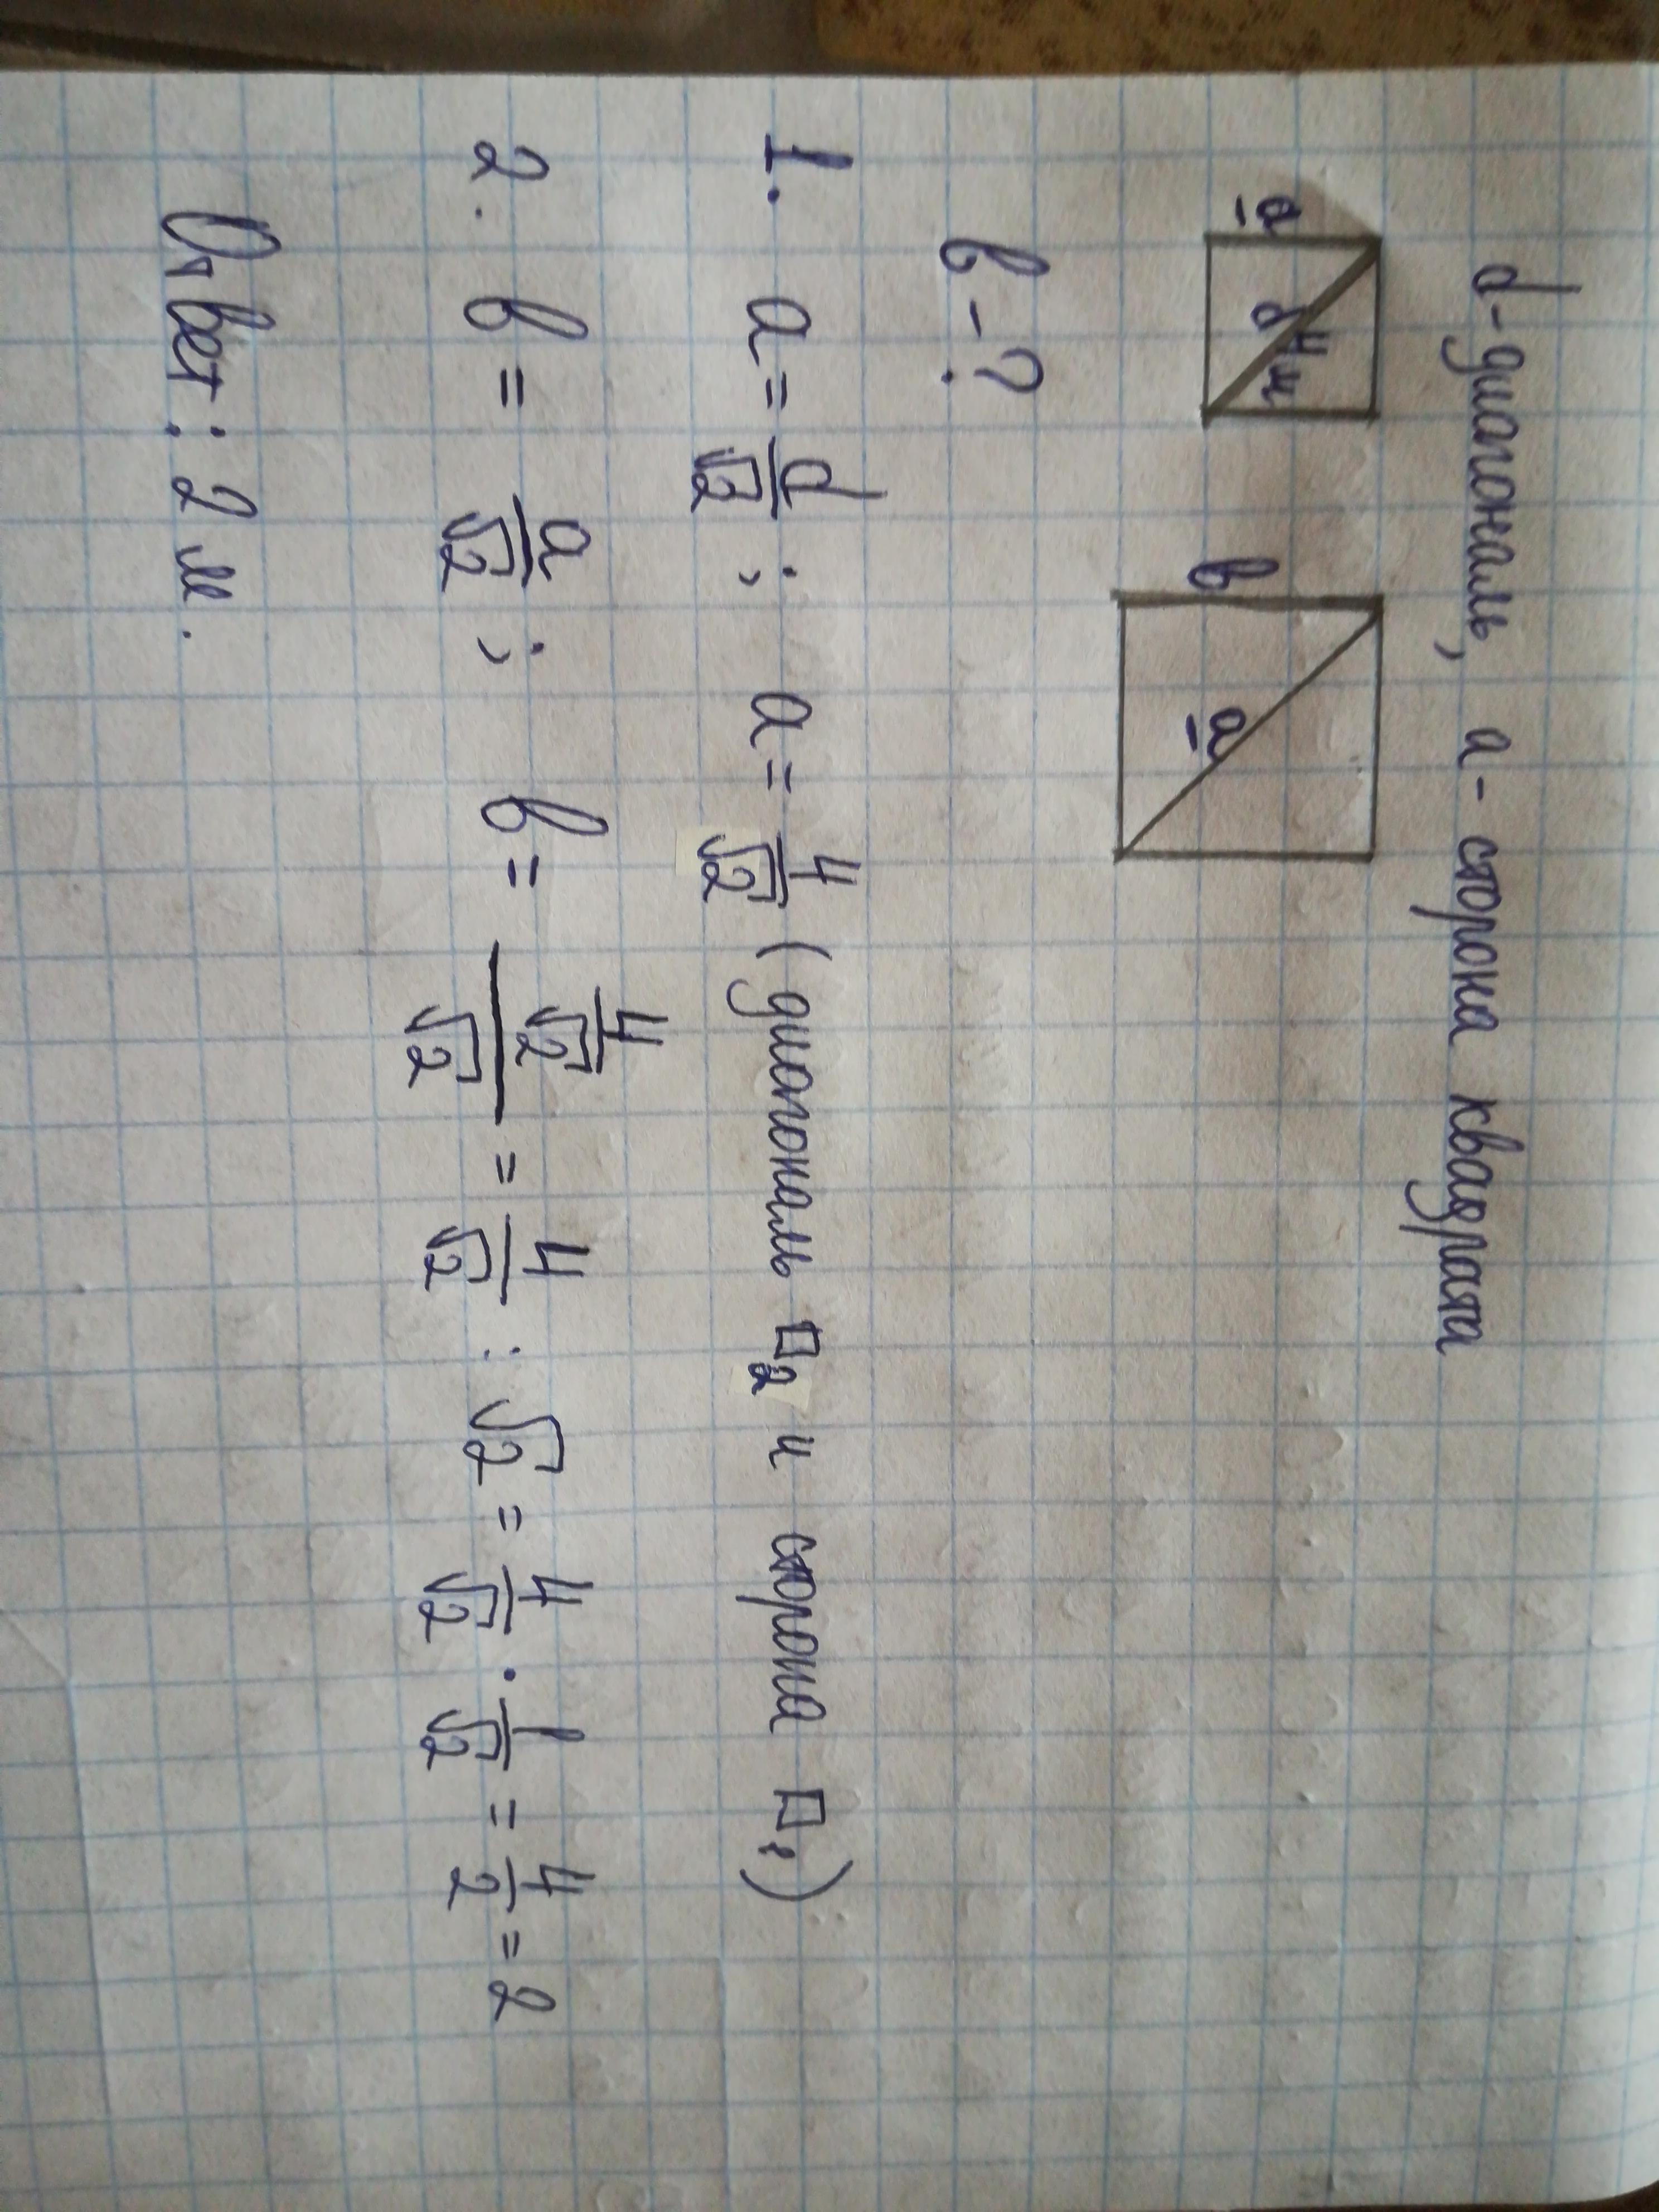 d - диагональ, a - сторона квадрата
a d 4 м
в a
в - ?
1. a = d/√2 ; a = 4/√2 (диагональ □₂ и сторона □₁)
2. в = a/√2 ; в = (4/√2)/√2 = 4/√2 : √2 = 4/√2 · 1/√2 = 4/2 = 2
Ответ: 2 м.